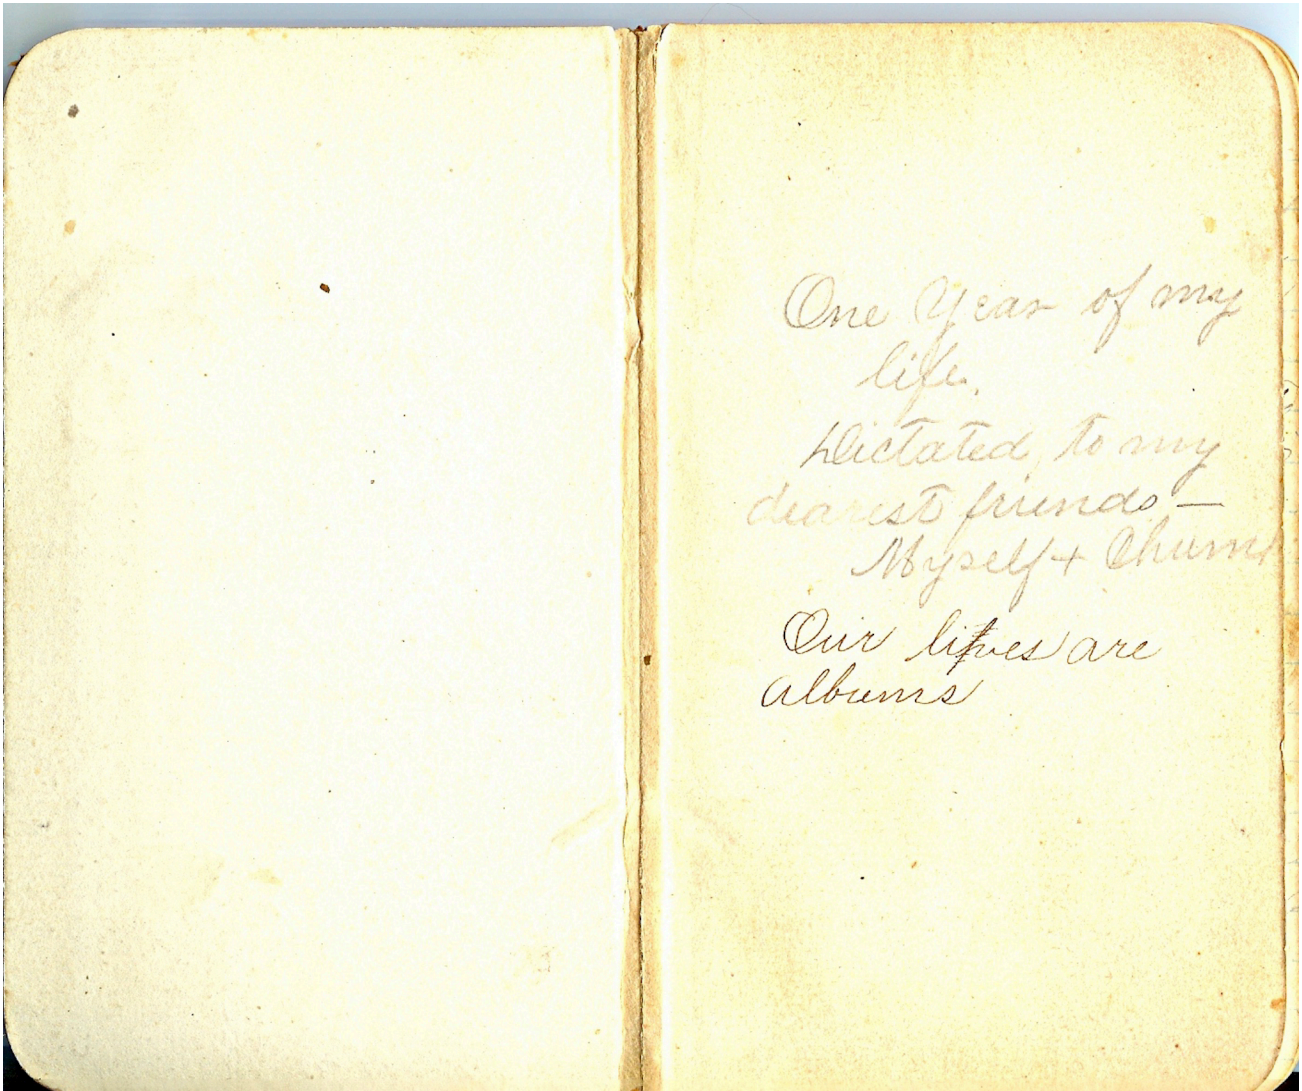 One Year of my
life.
Dictated to my
dearest friends —
Myself + Chum
Our lifves are
albums